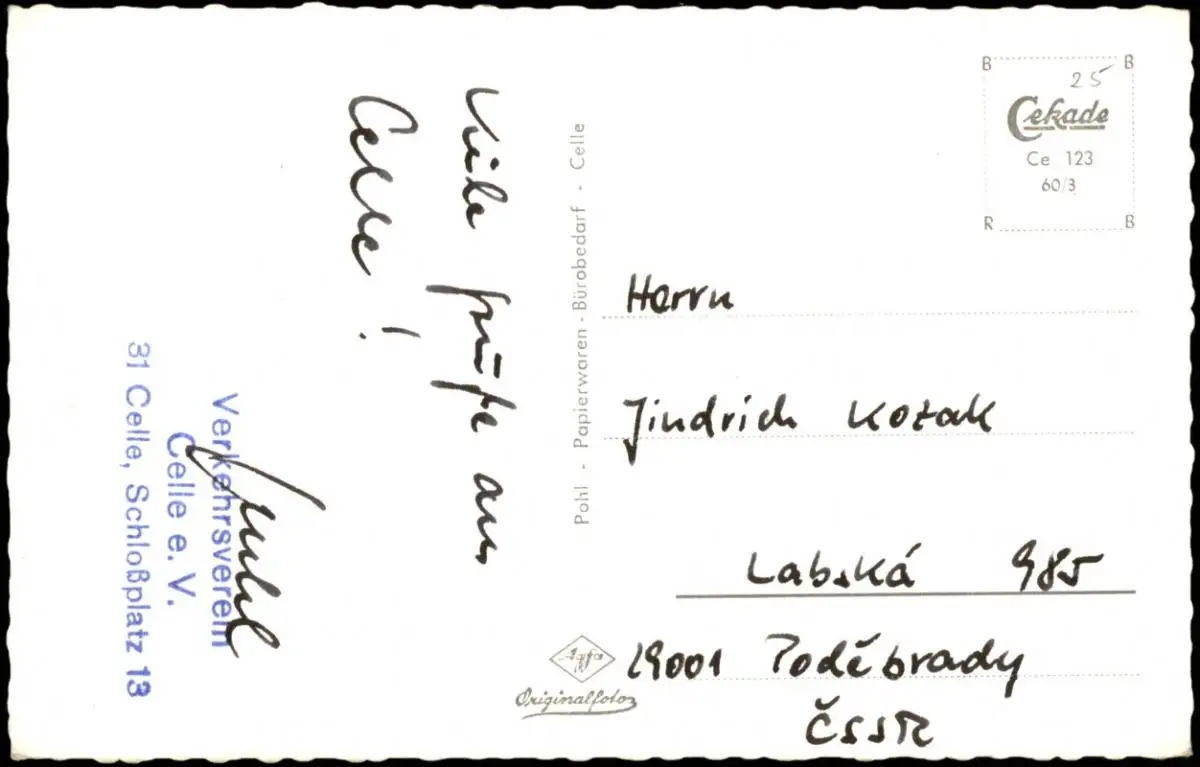 Viele Grüße aus
Celle !
Verkehrsverein
Celle e. V.
31 Celle, Schloßplatz 13
Pohl - Papierwaren - Bürobedarf - Celle
B B
25
Cekade
Ce 123
60/3
R B
Herrn
Jindrich Kozak
Labská 985
29001 Poděbrady
ČSSR
Agfa
Originalfoto